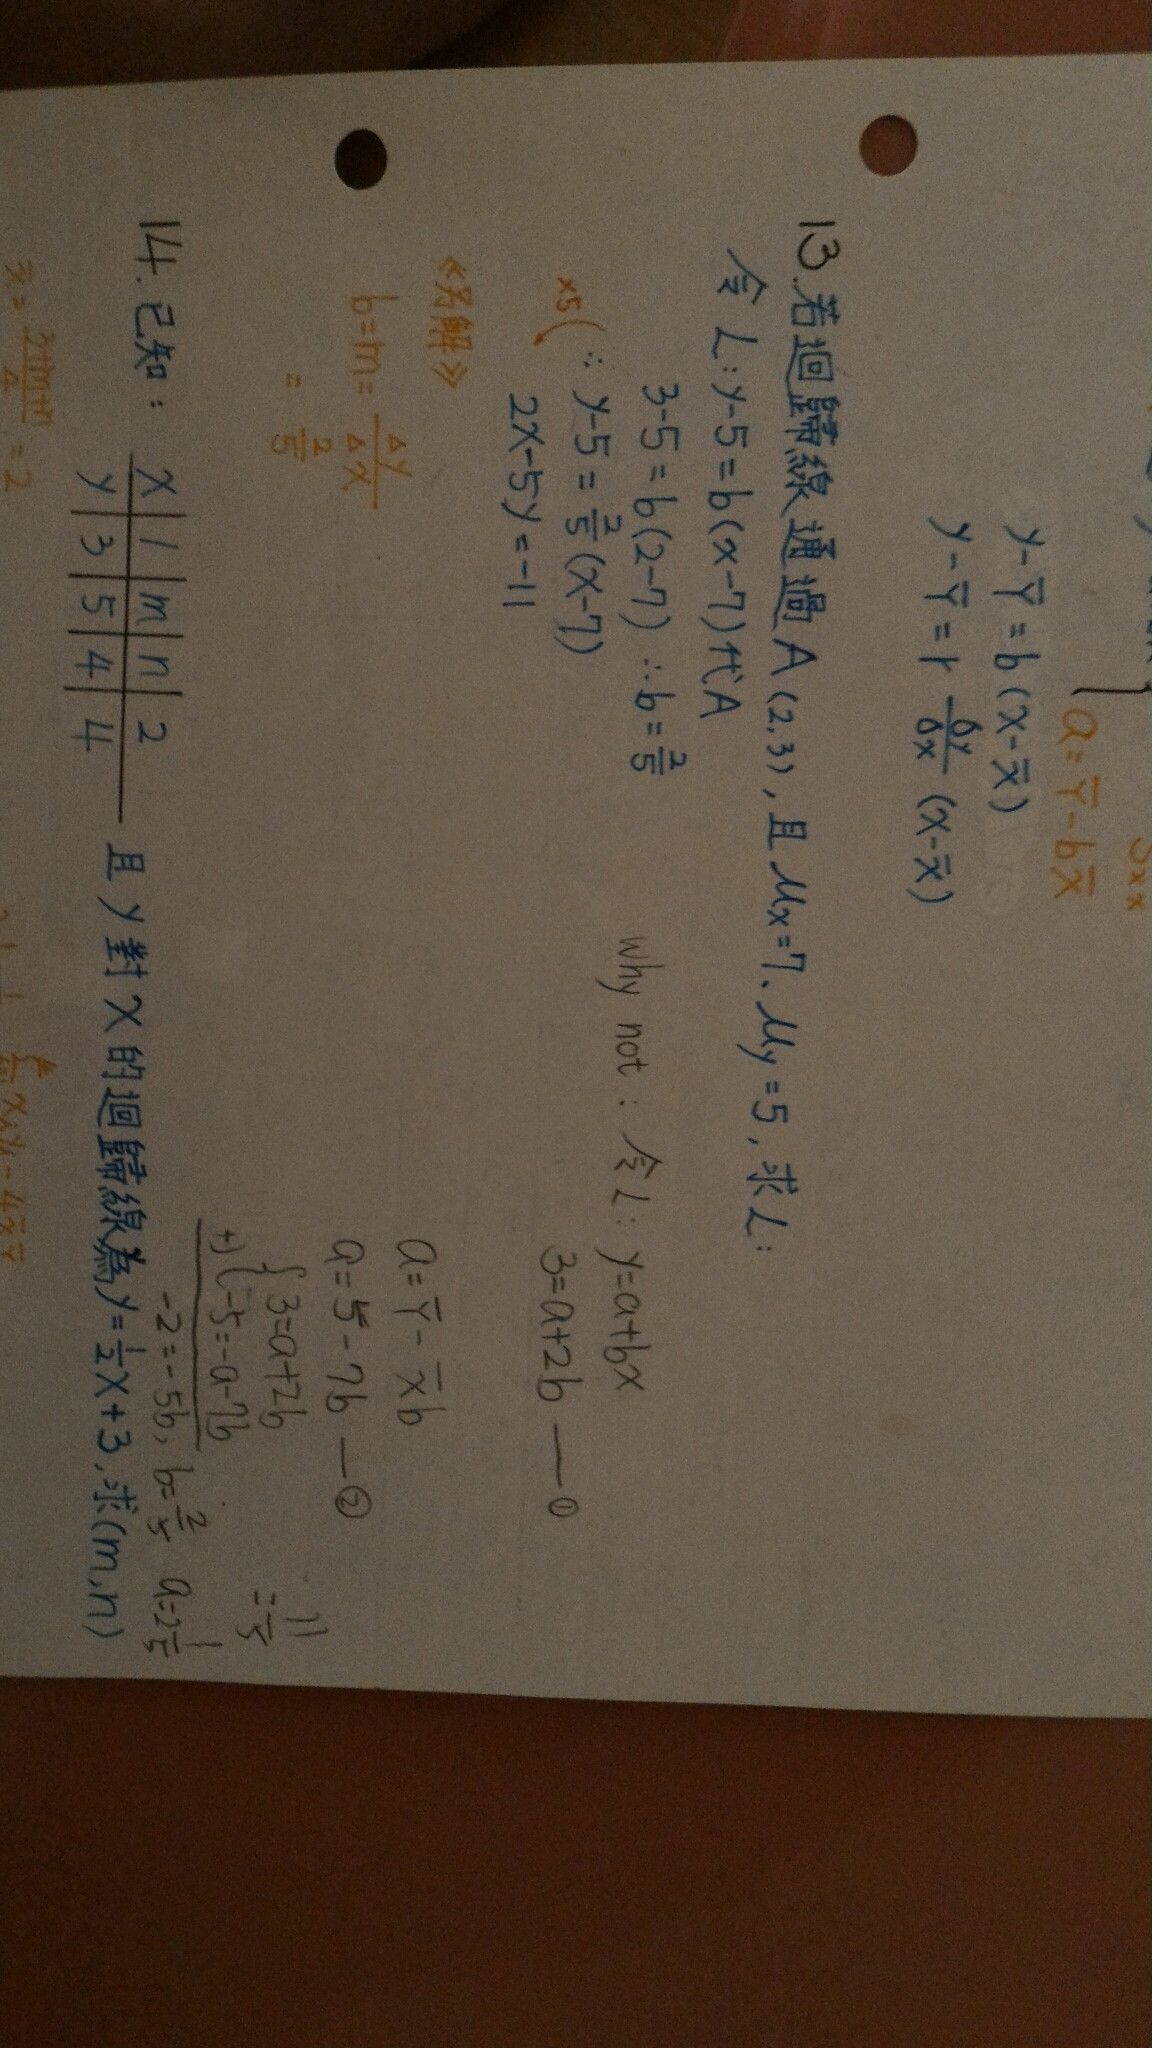 a = Y̅ - bX̅
y - Y̅ = b (x - X̅)
y - Y̅ = r σy/σx (x - X̅)
13. 若迴歸線通過 A (2,3), 且 Mx=7、My=5, 求 L:
令 L: y-5 = b (x-7) 代A
3-5 = b (2-7) ∴ b = 2/5
×5 ( ∴ y-5 = 2/5 (x-7)
2x-5y = -11
《另解》
b = m = Δy/Δx
= 2/5
why not : 令 L: y=a+bx
3=a+2b — ①
a = Y̅ - x̅b
a = 5 - 7b — ②
{ 3=a+2b
+) -5=-a-7b
-2=-5b, b=2/5 a=2 1/5
= 11/5
14. 已知: x 1 m n 2
y 3 5 4 4
且 y 對 x 的迴歸線為 y = 1/2 x + 3, 求 (m,n)
= 2